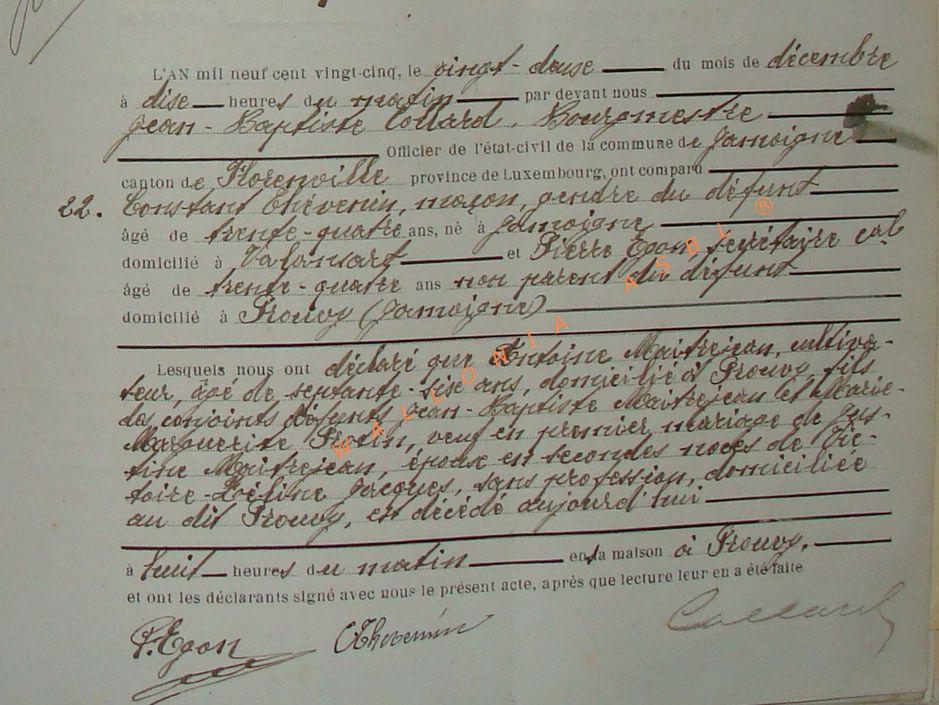 L'AN mil neuf cent vingt-cinq, le vingt-deuse du mois de décembre
à dise heures du matin par devant nous
Jean-Baptiste Collard, Bourgmestre
Officier de l'état-civil de la commune de Jamoigne
canton de Florenville province de Luxembourg, ont comparu
22. Constant Thévenin, maçon, gendre du défunt
âgé de trente-quatre ans, né à Jamoigne
domicilié à Valansart et Pierre Egon secrétaire cal
âgé de trente-quatre ans non parent du défunt
domicilié à Prouvy (Jamoigne)
Lesquels nous ont déclaré que Antoine Maitrejean, cultiva-
teur, âgé de septante-sise ans, domicilié à Prouvy, fils
des conjoints défunts Jean-Baptiste Maitrejean et Marie-
Marguerite Protin, veuf en premier mariage de Jus-
tine Maitrejean, époux en secondes noces de Vic-
toire-Zéline Jacques, sans profession, domiciliée
au dit Prouvy, est décédé aujourd'hui
à huit heures du matin en sa maison à Prouvy.
et ont les déclarants signé avec nous le présent acte, après que lecture leur en a été faite
P. Egon CThevenin Collard
WALLONIA ASBL ®